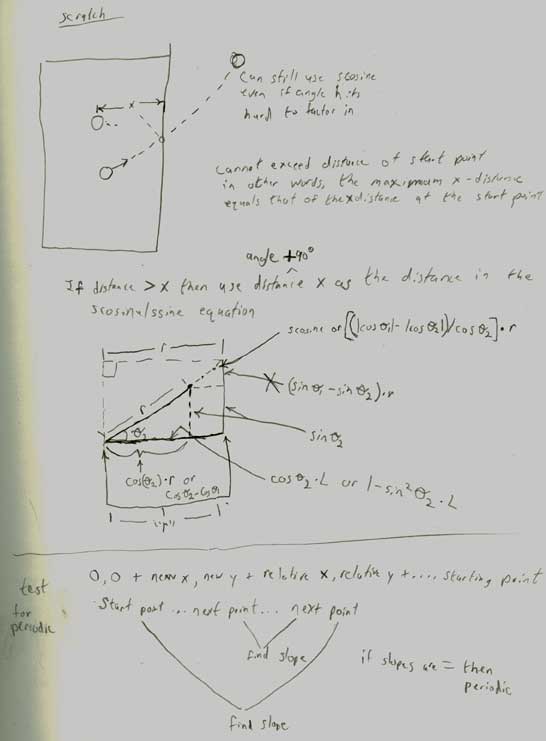 scratch
x
Can still use scosine
even if angle hits
hard to factor in
cannot exceed distance of start point
in other words, the maximum x-distance
equals that of the x distance at the start point
angle +90°
If distance > x then use distance x as the distance in the
scosine/ssine equation
r
scosine or [(|cosθ₁|-|cosθ₂|)/cosθ₂]·r
r
X (sinθ₁-sinθ₂)·r
θ₂
sinθ₂
cos(θ₂)·r or
cosθ₂-cosθ₁
cosθ₂·L or 1-sin²θ₂·L
test
for
periodic
0,0 + new x, new y + relative x, relative y + .... starting point
Start point ... next point ... next point
find slope
if slopes are = then
periodic
find slope